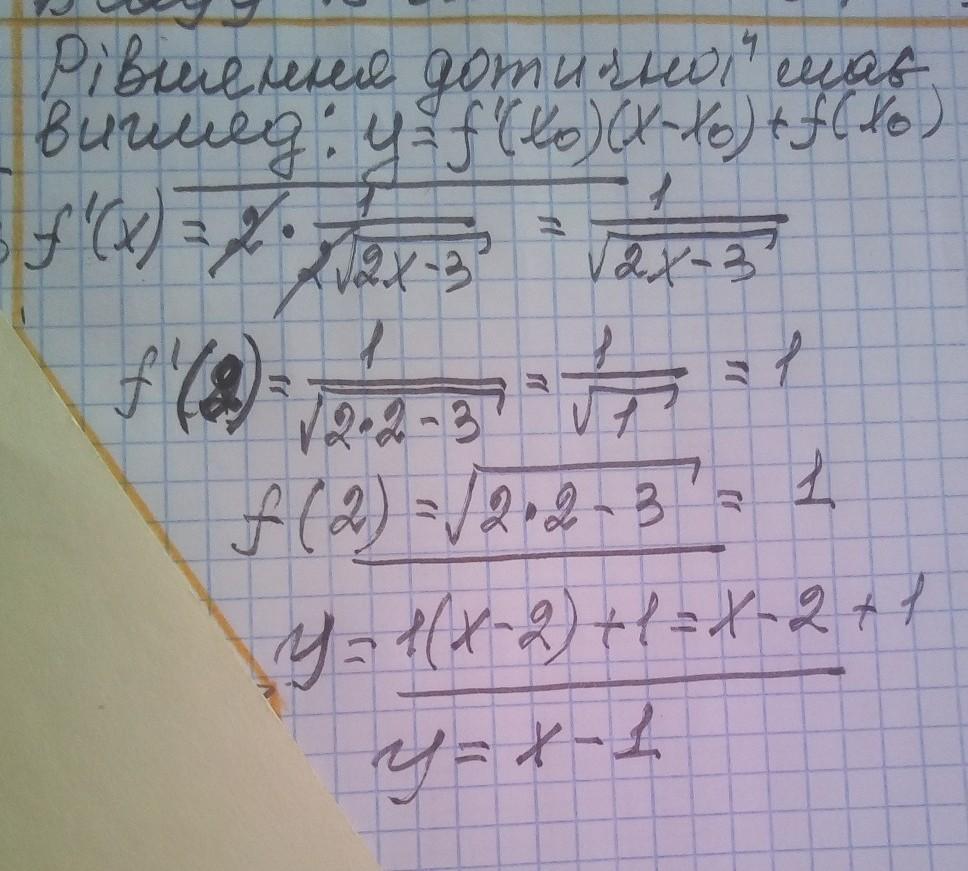 Рівняння дотичної має
вигляд: y = f'(x₀)(x-x₀)+f(x₀)
f'(x) = 2 · 1/(2√(2x-3)) = 1/√(2x-3)
f'(2) = 1/√(2·2-3) = 1/√1 = 1
f(2) = √(2·2-3) = 1
y = 1(x-2)+1 = x-2+1
y = x-1